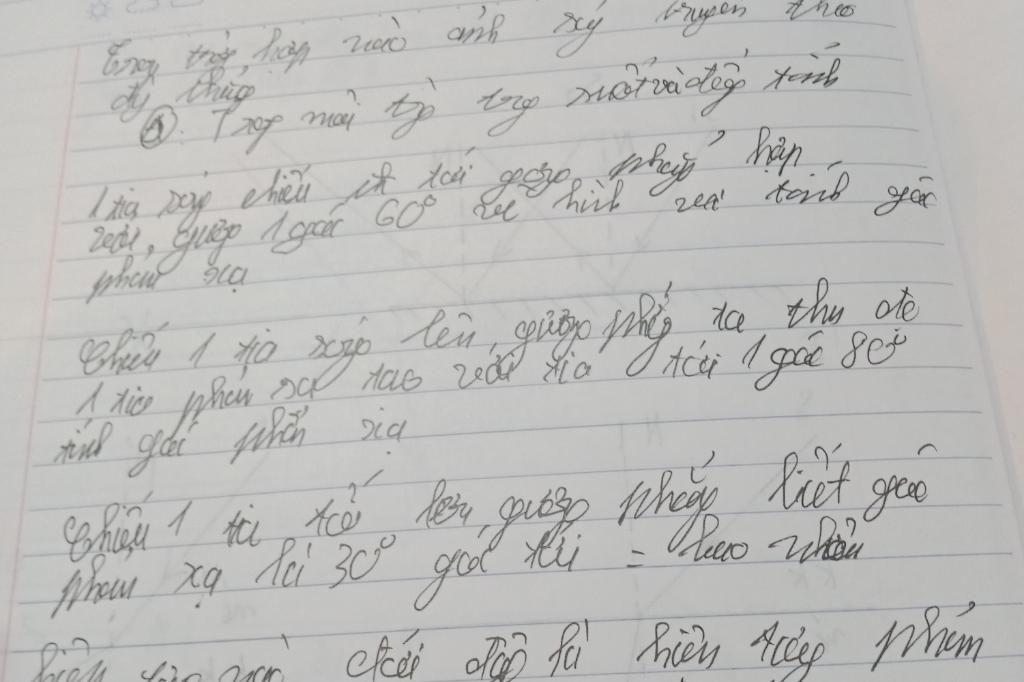 hợp nào ánh truyền theo
đg thẳng
A. Trog môi trg trog suốt và đồg tính
1 tia ság chiếu tới gươg phẳg hợp
với gươg 1 góc 60° vẽ hình và tính góc
phản xạ
Chiếu 1 tia ság lên gươg phẳg ta thu đc
1 tia phản xạ tạo với tia tới 1 góc 80°
tính góc phản xạ
Chiếu 1 tia tới lên gươg phẳg biết góc
phản xạ là 30° góc tới = bao nhiêu
đây là hiện tượg phản